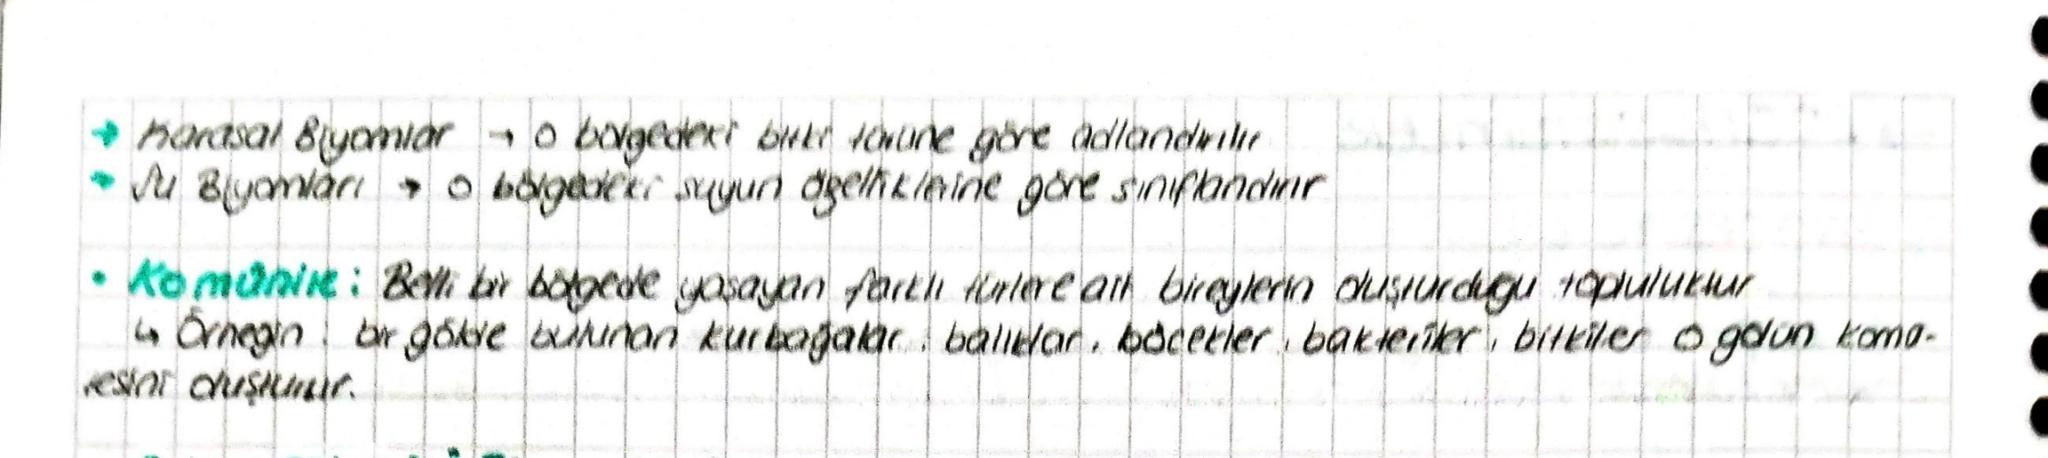 → Karasal Biyomlar → o bölgedeki bitki türüne göre adlandırılır
→ Su Biyomları → o bölgedeki suyun özelliklerine göre sınıflandırılır
• Komünite: Belli bir bölgede yaşayan farklı türlere ait bireylerin oluşturduğu topluluktur
↳ Örneğin: bir gölde bulunan kurbağalar, balıklar, böcekler, bakteriler, bitkiler o gölün komü-
tesini oluşturur.